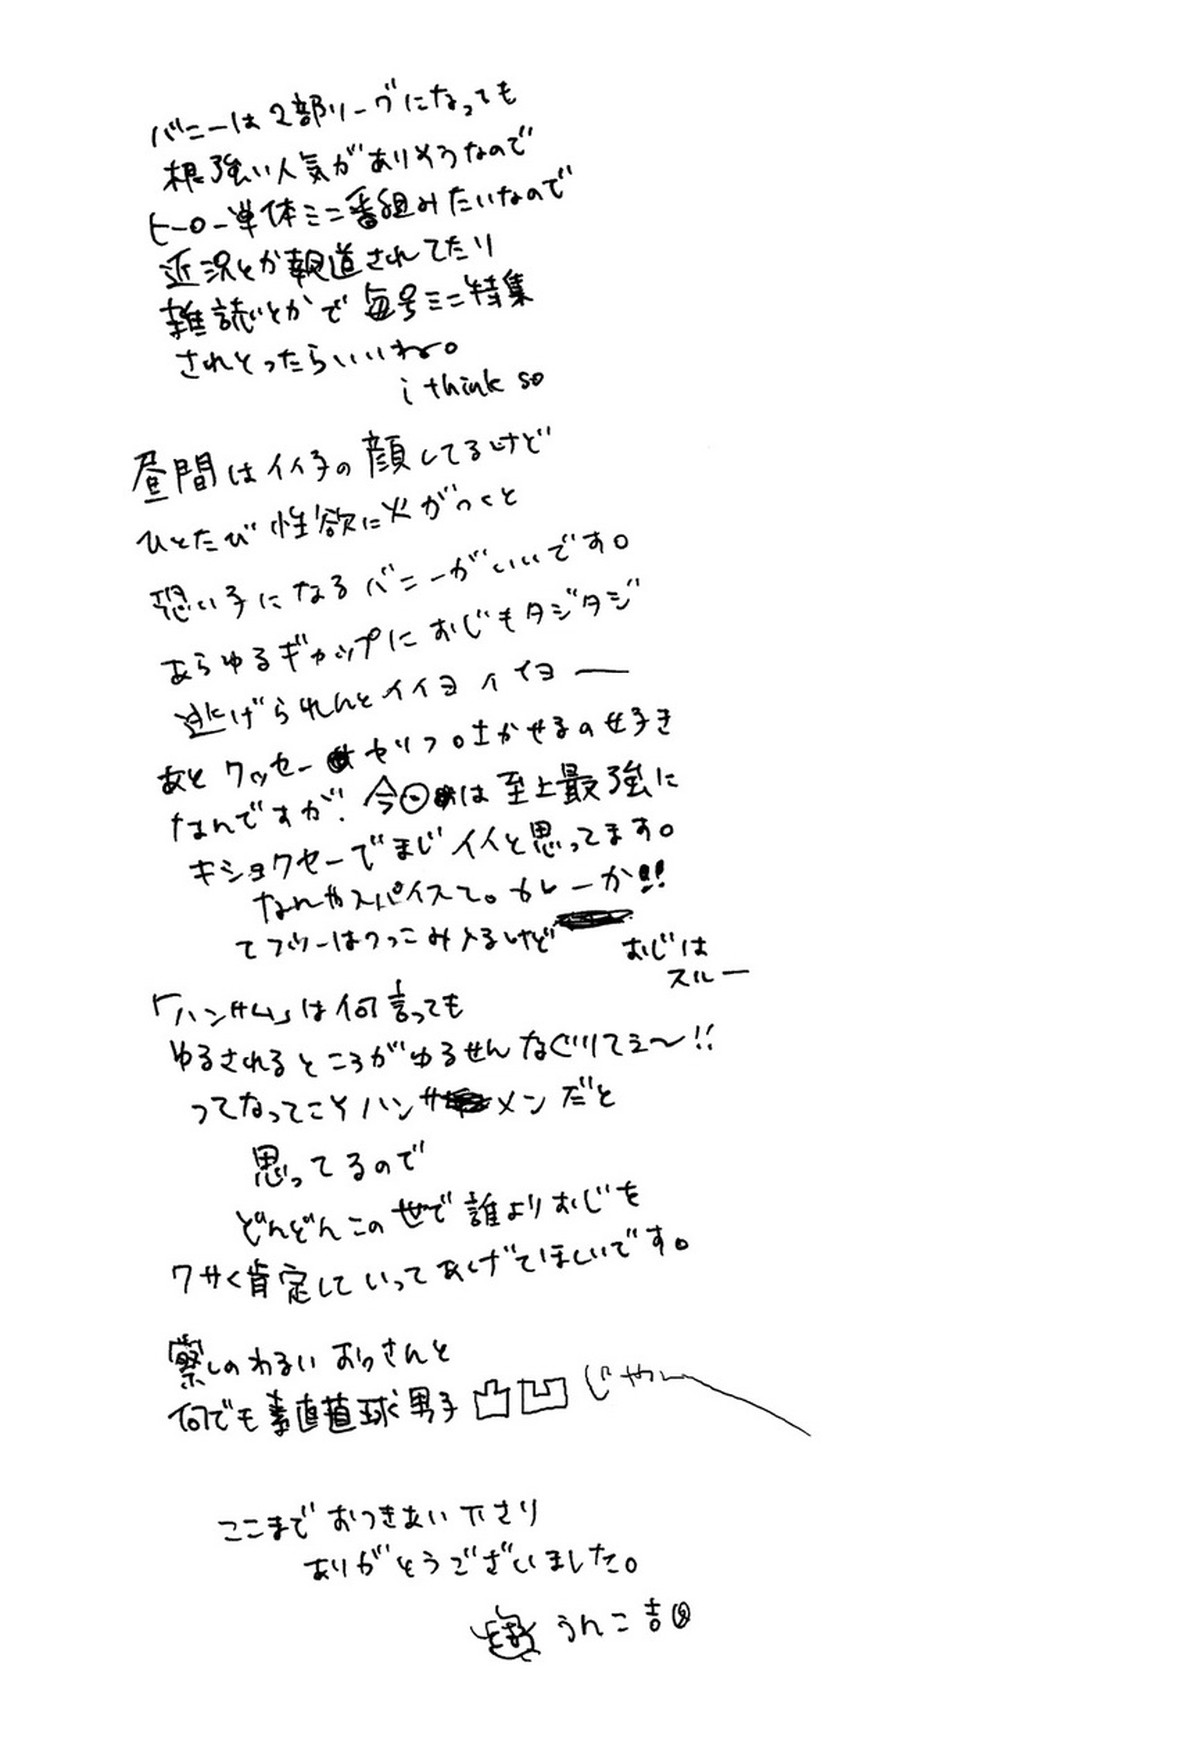 バニーは2部リーグになっても
根強い人気がありそうなので
ヒーロー単体ミニ番組みたいなので
近況とか報道されてたり
雑誌とかで毎号ミニ特集
されとったらいいね。
i think so
昼間はイイ子の顔してるけど
ひとたび性欲に火がつくと
恐い子になるバニーがいいです。
あらゆるギャップにおじもタジタジ
逃げられんとイイヨイイヨー
あとクッセーセリフ吐かせるのせ好き
なんですが、今回は至上最強に
キショクセーでまじイイと思ってます。
なんやスパイスて。カレーか!!
てフツーはつっこみ入るけど
おじは
スルー
「ハンサム」は何言っても
ゆるされるところがゆるせんなぐりてェ〜!!
ってなってこそハンサメンだと
思ってるので
どんどんこの世で誰よりおじを
クサく肯定していってあげてほしいです。
察しのわるいおっさんと
何でも素直直球男子凸凹じゃー
ここまでおつきあい下さり
ありがとうございました。
うんこ吉田